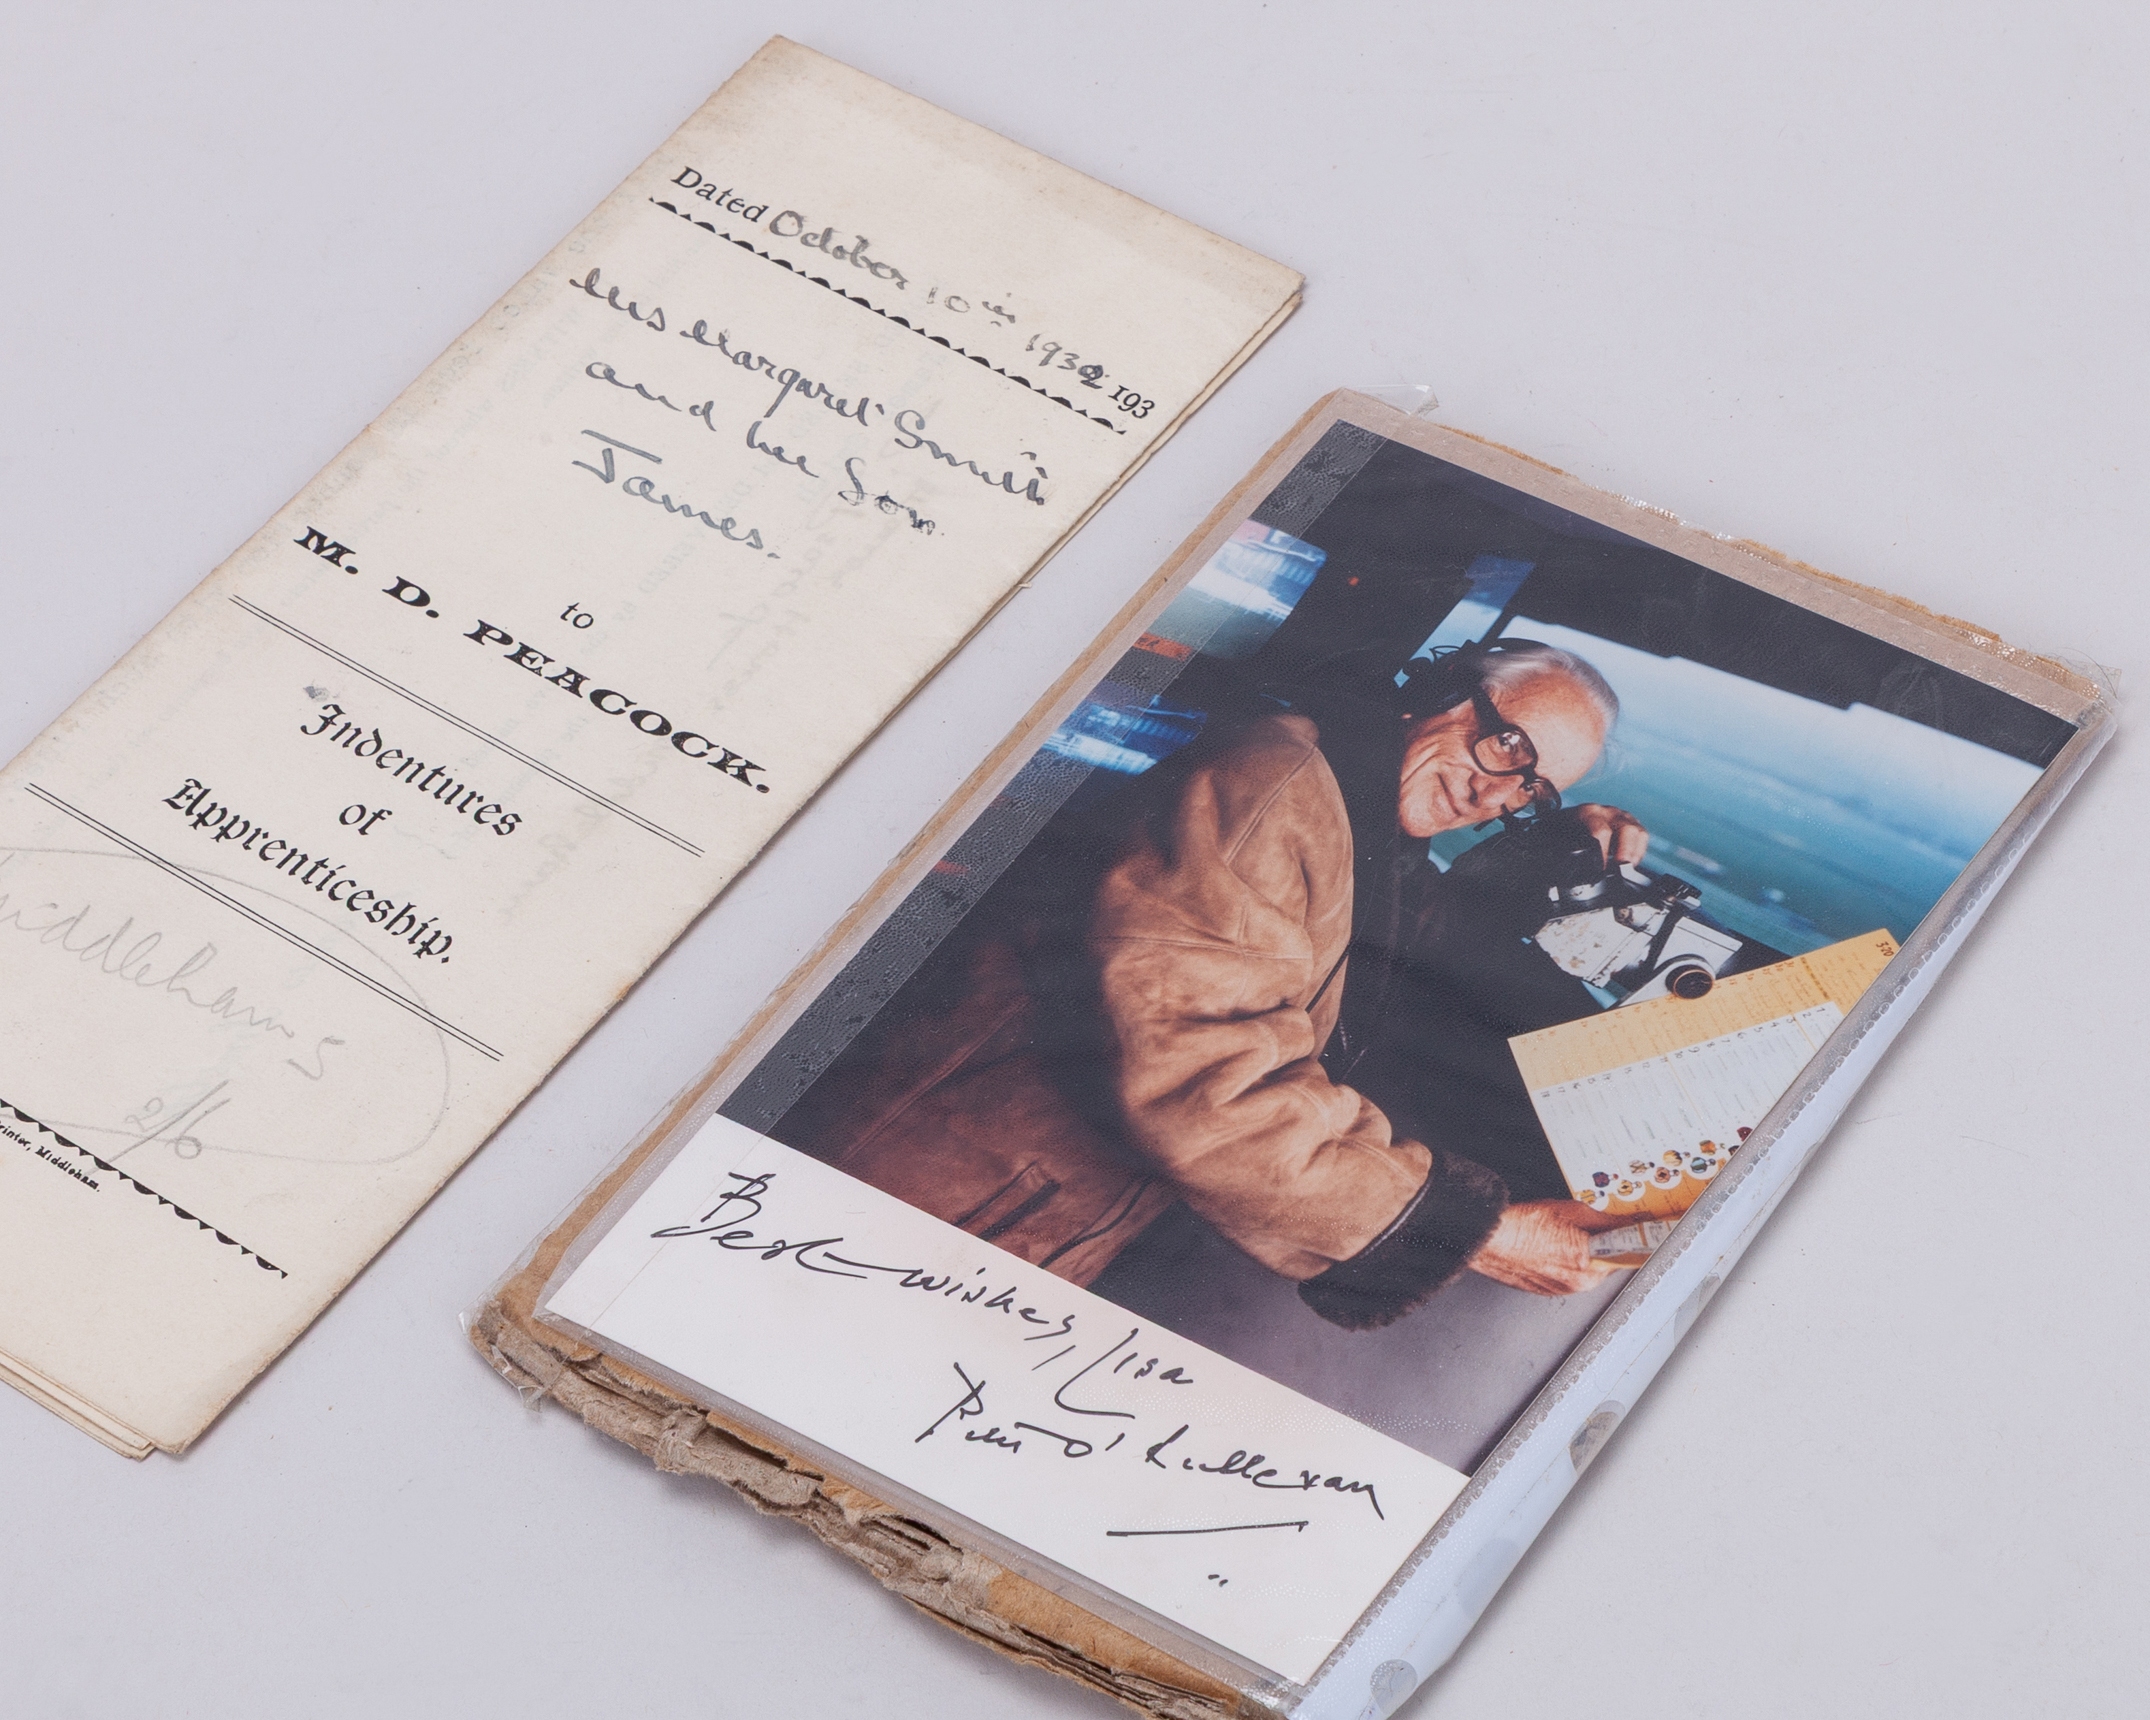 Dated October 10th 1932 193
Mrs Margaret Smith
and her Son
James.
to
M. D. PEACOCK.
Indentures
of
Apprenticeship.
Middleham
2/6
Printer, Middleham.
3·20
Best wishes, Lisa
Peter O'Sullevan